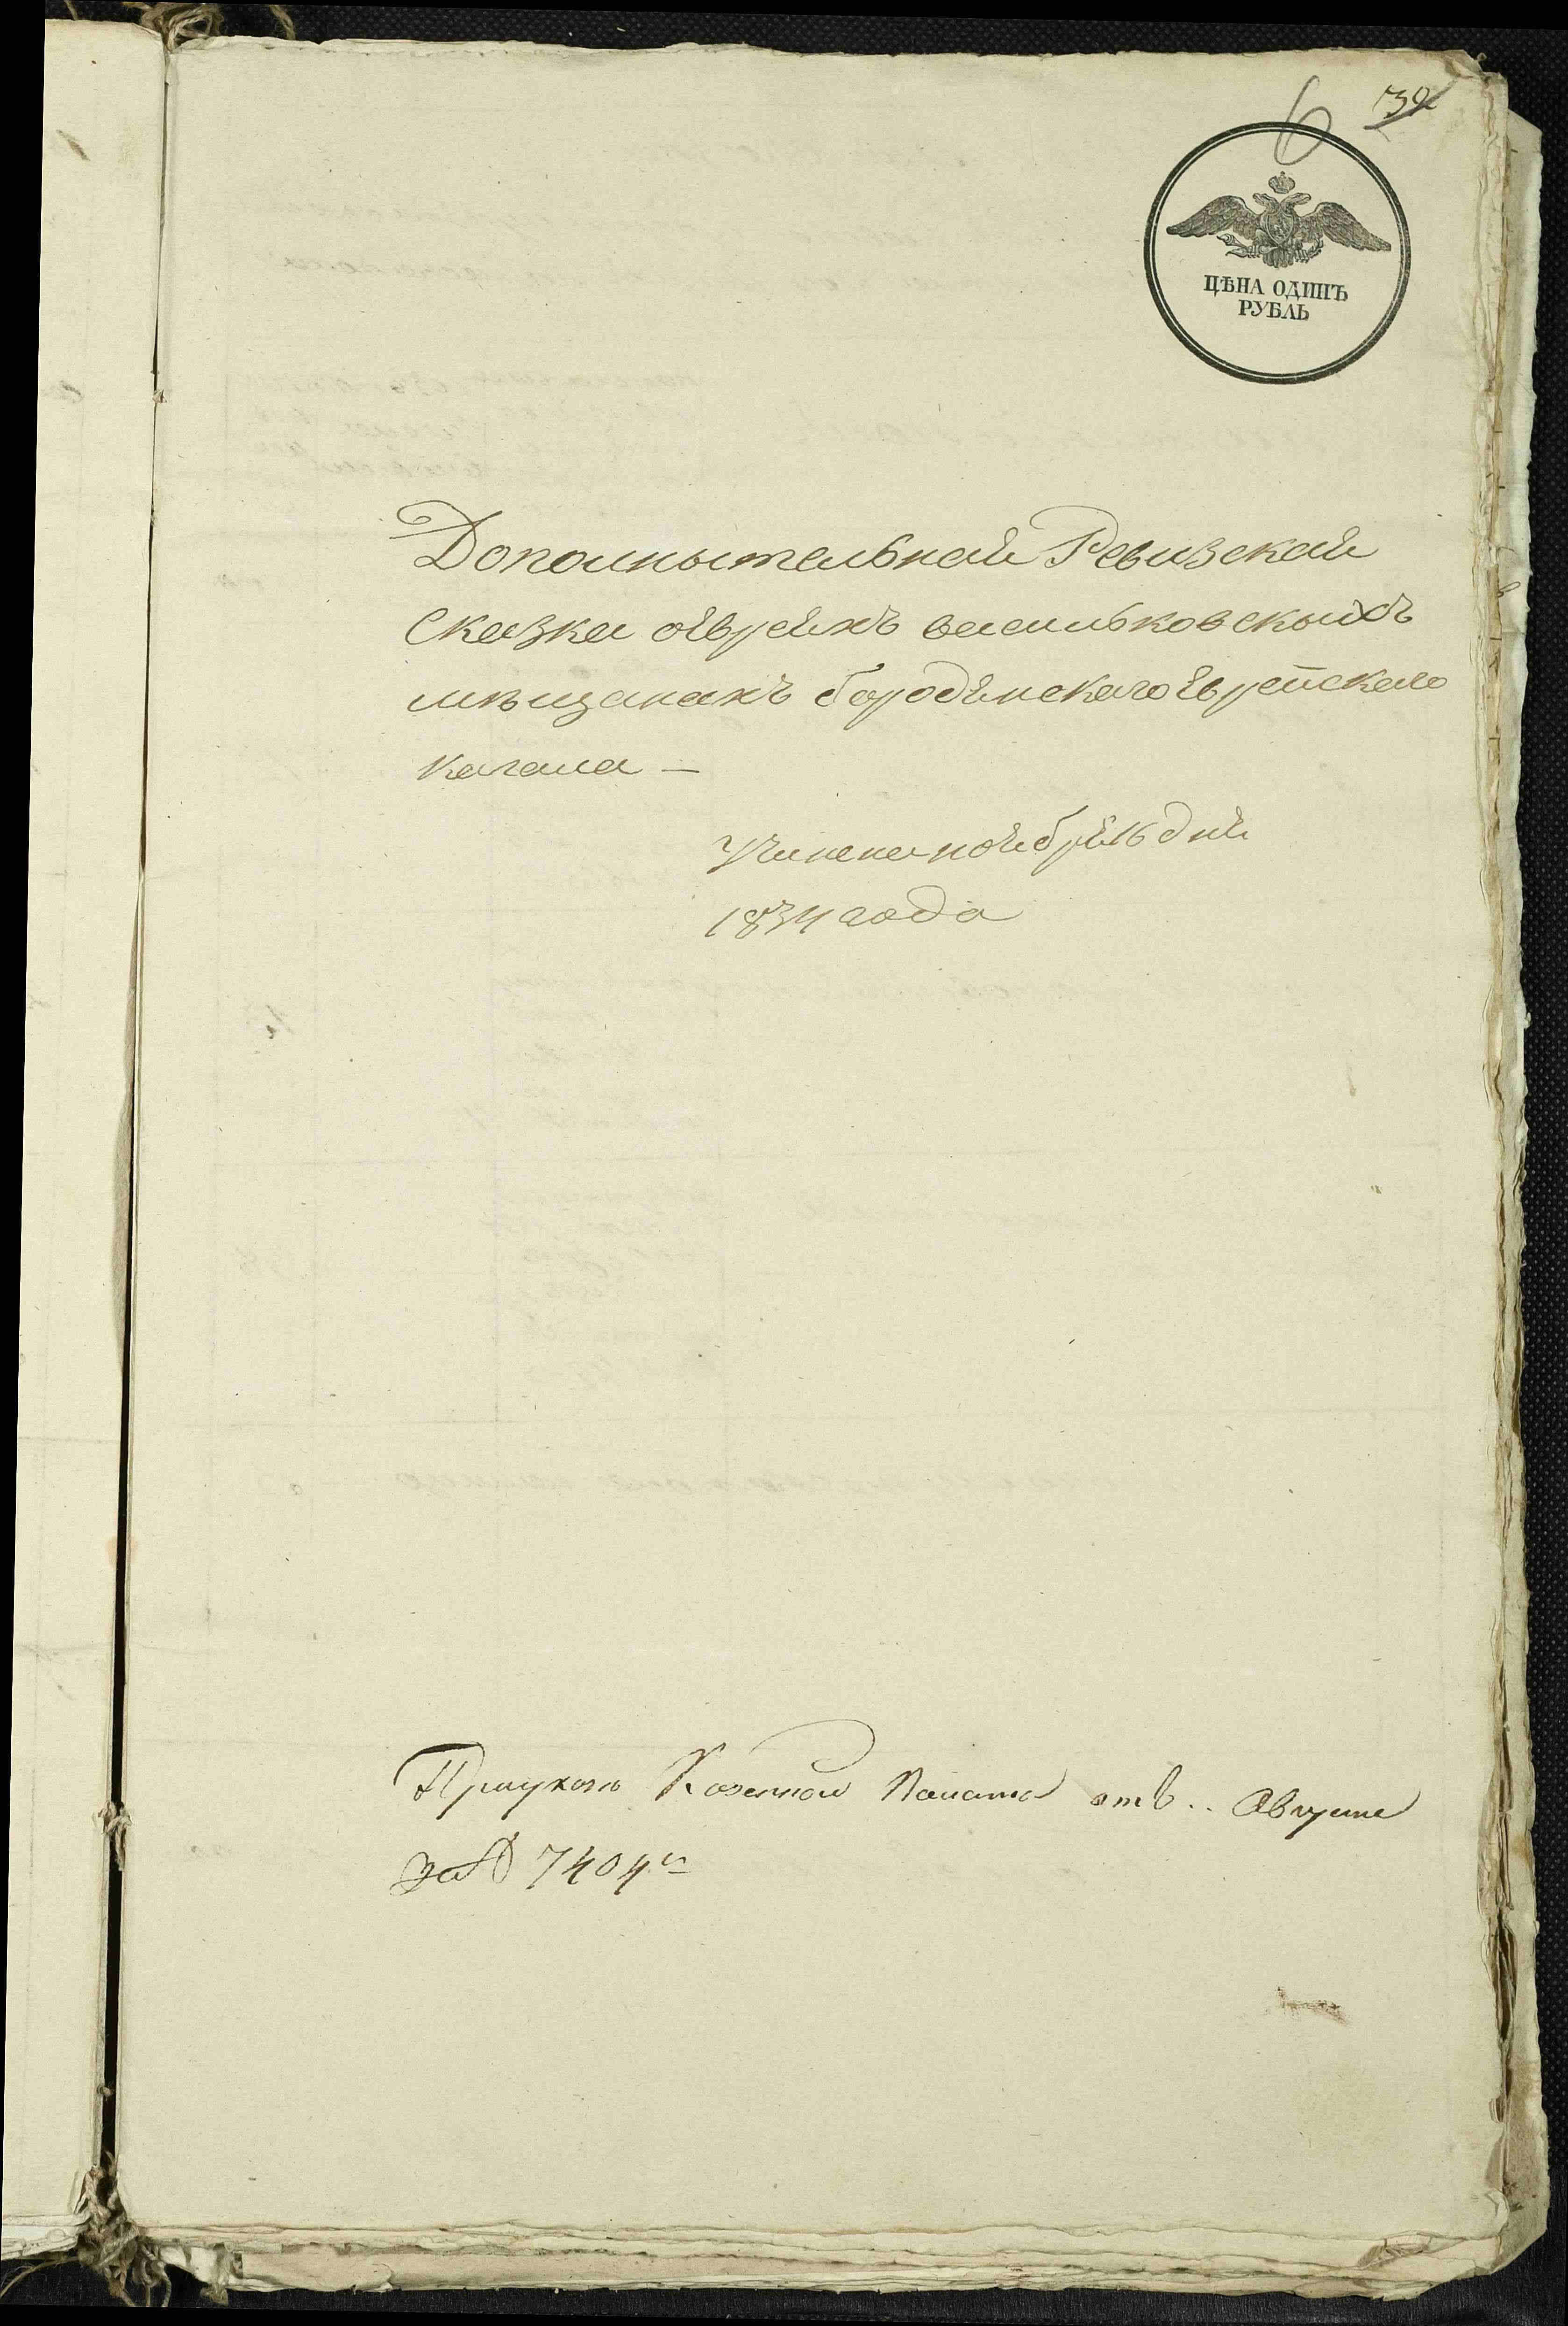 6 39
ЦѢНА ОДИНЪ
РУБЛЬ
Дополнытельная Ревизская
Сказка оевреяхъ васильковскыхъ
мѣщанахъ Городынскаго еврейскаго
кагала —
Учинена ноября 16 дня
1834 года
При указѣ Казенной Палаты отъ .. Августа
за № 7404м